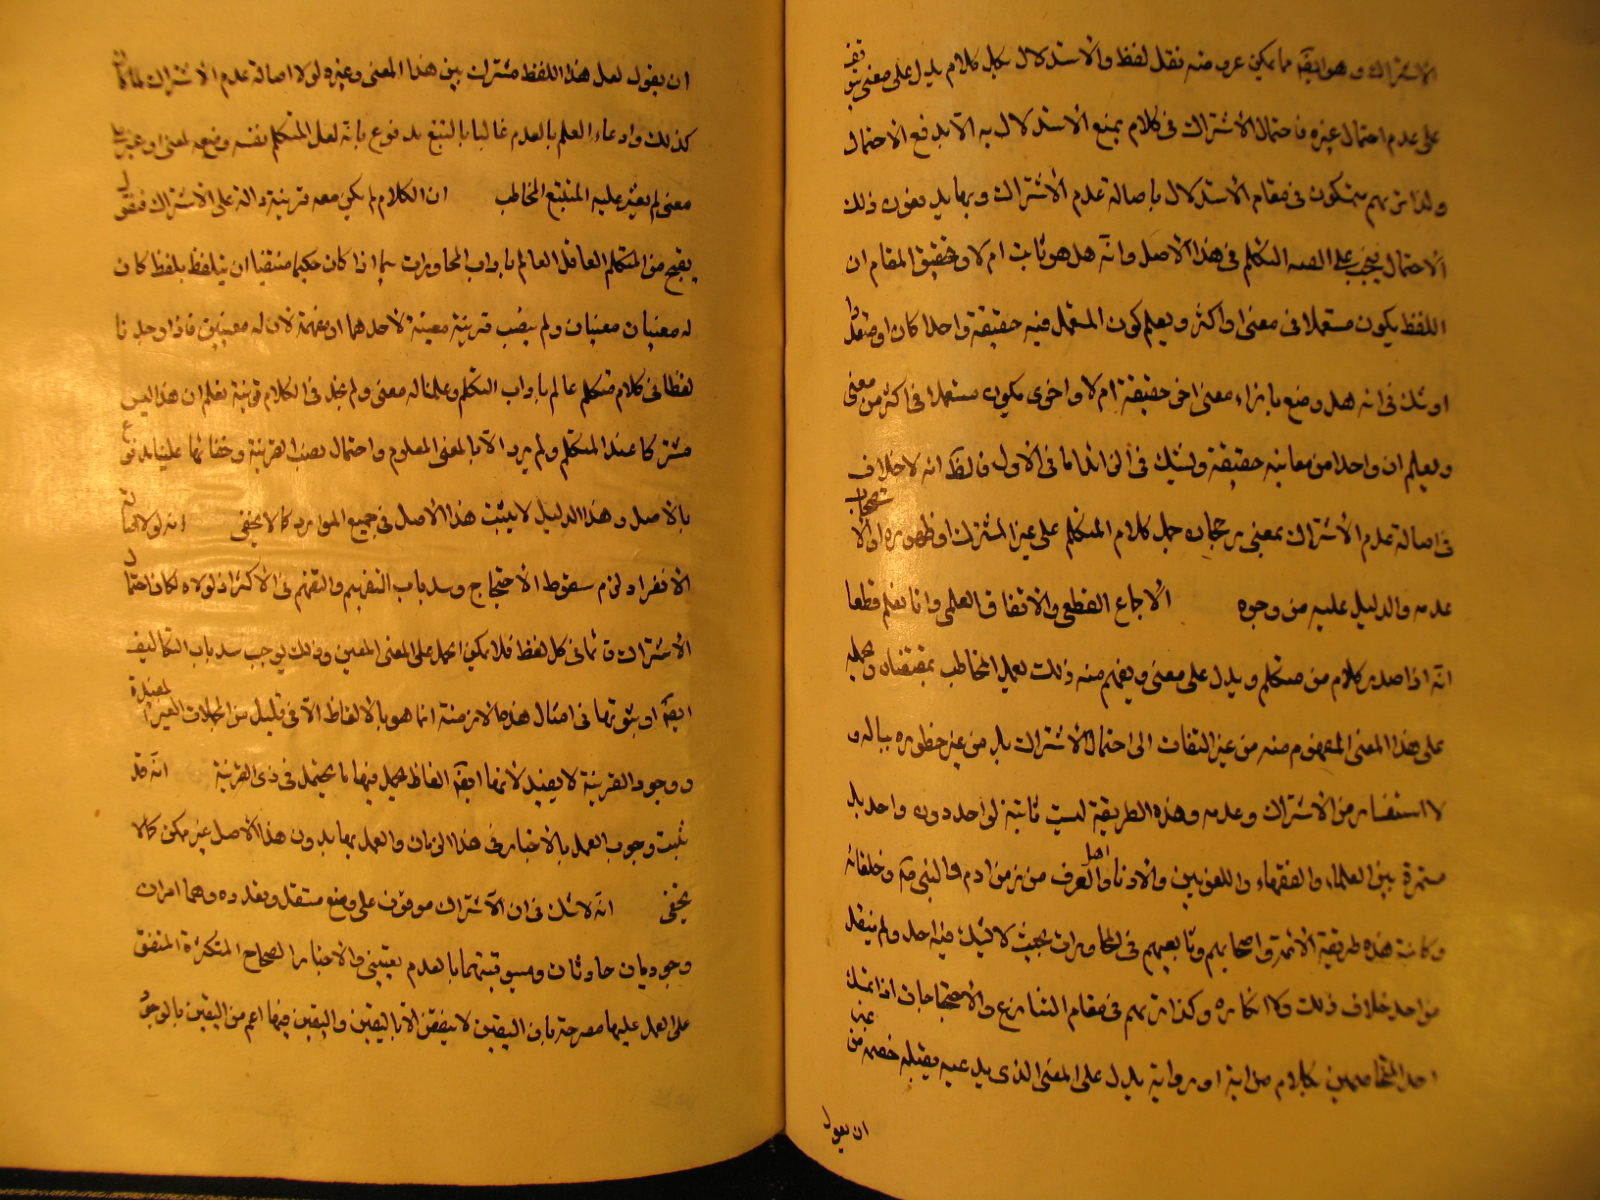 الاشتراك وهو ايضا مما يمكن عرف منه فنقل لفظ والاستدلال بكل كلام يدل على معنى يتوقف
على عدم احتمال غيره فاحتمال الاشتراك فى كلام يمنع الاستدلال به الا بدفع الاحتمال
ولذا تريهم يتمسكون فى مقام الاستدلال باصالة عدم الاشتراك وبها يدفعون ذلك
الاحتمال فيجب على التكلم فى هذا الاصل وانه هل هو ثابت ام لا وتحقيق المقام ان
اللفظ يكون مستعملا فى معنى او اكثر ويعلم كون المستعمل فيه حقيقة واحدا كان او متعددا
او شك فى انه هل وضع بازاء معنى اخر حقيقة ام لا واخرى يكون مستعملا فى اكثر من معنى
ويعلم ان واحدا من معانيه حقيقة ويشك فى الزائد اما فى الاول فالظ انه لا خلاف
فى اصالة عدم الاشتراك بمعنى رجحان حمل كلام المتكلم على غير المشترك او ظهوره او استصحاب
عدمه والدليل عليه من وجوه الاول الاجماع القطعى والاتفاق العلمى وانا نعلم قطعا
انه اذا صدر كلام من متكلم ويدل على معنى ويفهم منه ذلك يعمل المخاطب بمقتضاه وحمله
على هذا المعنى المفهوم منه من غير التفات الى احتمال الاشتراك بل من غير خطوره بباله و
لا استفسار من الاشتراك وعدمه وهذه الطريقة ليست ثابتة لواحد دون واحد بل
مستمرة بين العلماء والفقهاء واللغويين والادباء واهل العرف من زمن ادم والنبى صم وخلفائه
وكانت هذه طريقة الائمة واصحابهم وتابعيهم فى المحاورات بحيث لا يشك فيه احد ولم ينقل
من احد خلاف ذلك ولا انكاره وكذا تريهم فى مقام التنازع والاحتجاجات اذا تمسك
احد المتخاصمين بكلام من اية او رواية يدل على المعنى الذى يدعيه يقبله خصمه من غير
ان يقول
ان يقول لعل هذا اللفظ مشترك بين هذا المعنى وغيره لولا اصالة عدم الاشتراك لما كان
كذلك وادعاء العلم بالعدم غالبا بالتتبع مدفوع بانه لعل المتكلم نفسه وضعه لمعنى او غيره على
معنى لم يعثر عليه المتتبع المخاطب ان الكلام لم يكن معه قرينة دالة على الاشتراك فنقول
يقبح من المتكلم العاقل العالم باداب المحاورات سيما اذا كان حكيما متقيا ان يتلفظ بلفظ كان
له معنيان معنيان ولم ينصب قرينة معينة لاحدهما او مفهمة لان له معنيين فاذا وجدنا
لفظا فى كلام متكلم عالم باداب التكلم وعلمنا له معنى ولم نجد فى الكلام قرينة نعلم ان هذا ليس
مشتركا عند المتكلم ولم يرد الا بالمعنى المعلوم واحتمال نصب القرينة وخفائها علينا مدفوع
بالاصل وهذا الدليل لا يثبت هذا الاصل فى جميع الموارد كما لا يخفى انه لولا اصالة
الانفراد لزم سقوط الاحتجاج وسد باب التفهيم والتفهم فى الاكثر اذ لولاه لكان احتمال
الاشتراك قائما فى كل لفظ فلا يمكن الحمل على المعنى المعين وذلك يوجب سد باب التكاليف
ايضا اذ ثبوتها فى امثال هذه الازمنة انما هو بالالفاظ الا فى قليل من المجملات الغير المفيدة
ووجود القرينة لا يفيد لانها ايضا الفاظ يحتمل فيها ما يحتمل فى ذى القرينة انه قد
ثبت وجوب العمل بالاخبار فى هذا الزمان والعمل بها بدون هذا الاصل غير ممكن كما لا
يخفى انه لا شك فى ان الاشتراك موقوف على وضع مستقل وتعدده وهما امران
وجوديان حادثان ومسبوقيتهما بالعدم يقينى والاخبار الصحاح المتكثرة المتفق
على العمل عليها مصرحة بان اليقين لا ينقض الا باليقين واليقين فيها اعم من اليقين بالوجود